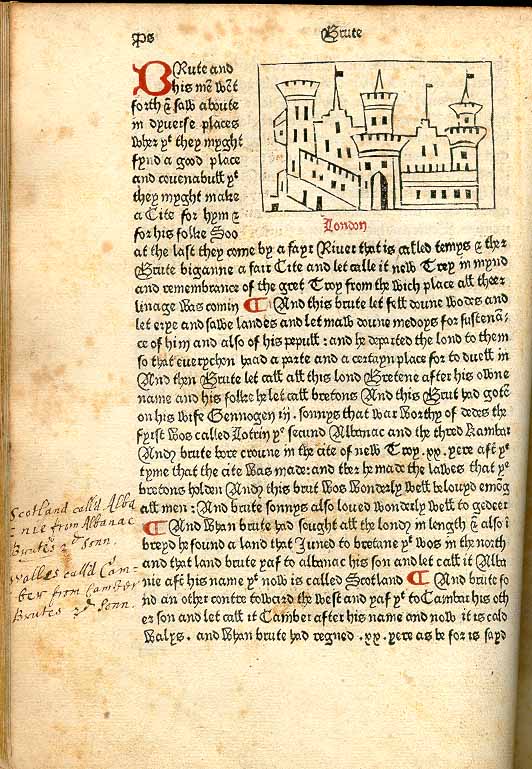 Brute
BRute and
his mē wēt
forth & saw aboute
in dyuerse places
wher yᵉ they myght
fynd a good place
and couenabull yᵗ
they myght make
a Cite for hym &
for his folke Soo
London
at the last they come by a fayr Riuer that is called temys & ther
Brute biganne a fair Cite and let calle it new Troy in mynd
and remembrance of the gret Troy from the wich place all theer
linage was comin ¶ And this brute let fell doune wodes and
let erye and sawe landes and let maw doune medoys for sustenā-
ce of him and also of his pepull : and he departed the lond to them
so that euerychon haad a parte and a certayn place for to duell in
And then Brute let call all this lond Bretene after his owne
name and his folke he let call bretons And this Brut had gotē
on his wife Gennogen iij. sonnys that war worthy of dedes the
fyrst wos called Lotrin yᵉ secund Albanac and the thred Kambar
And brute bore croune in the cite of new Troy .xx. yere aft yᵉ
tyme that the cite was made: and ther he made the lawes that yᵉ
bretons holden And this brut was wonderly well belouyd emōg
all men : And brute sonnys also loued wonderly well to gedeer
¶ And whan brute had sought all the lond in length & also i
breyd he found a land that Juned to bretane yᵗ wos in the north
and that land brute yaf to albanac his son and let call it Alba
nie aft his name yᵗ now is called Scotland ¶ And brute fo
nd an other contre toward the west and yaf yᵗ to Cambar his oth
er son and let call it Camber after his name and now it is cald
Walys. and whan brute had regned .xx. yere as be for is sayd
Scotland call'd Alba
nie from Albanac
Brutes 2ᵈ sonn.
Walles call'd Cam-
ber from Camber
Brutes 3ᵈ sonn.